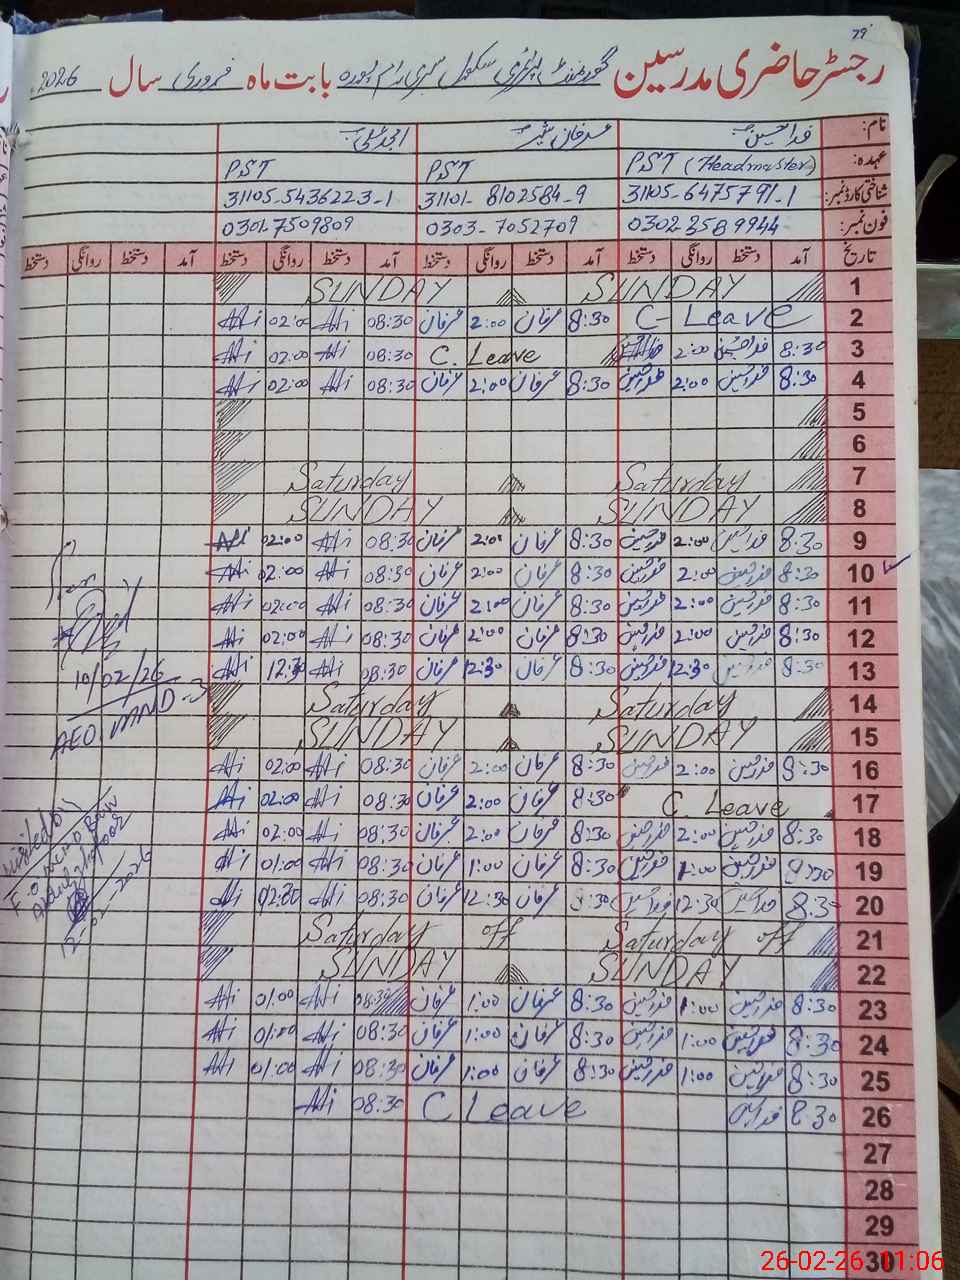 79
رجسٹر حاضری مدرسین گورنمنٹ پرائمری سکول سری رام پورہ بابت ماہ فروری سال 2026
نام: فدا حسین عرفان شبیر امجد علی
عہدہ: PST (Headmaster) PST PST
شناختی کارڈ نمبر: 31105-6475791-1 31101-8102584-9 31105-5436223-1
فون نمبر: 0302-2589944 0303-7052709 0301-7509809
تاریخ آمد دستخط روانگی دستخط آمد دستخط روانگی دستخط آمد دستخط روانگی دستخط آمد دستخط روانگی دستخط
1 SUNDAY SUNDAY
2 C-Leave 8:30 عرفان 2:00 عرفان 08:30 Ali 02:00 Ali
3 8:30 فدا حسین 2:00 فدا حسین C. Leave 08:30 Ali 02:00 Ali
4 8:30 فدا حسین 2:00 فدا حسین 8:30 عرفان 2:00 عرفان 08:30 Ali 02:00 Ali
5
6
7 Saturday Saturday
8 SUNDAY SUNDAY
9 8:30 فدا حسین 2:00 فدا حسین 8:30 عرفان 2:00 عرفان 08:30 Ali 02:00 Ali
10 8:30 فدا حسین 2:00 فدا حسین 8:30 عرفان 2:00 عرفان 08:30 Ali 02:00 Ali
11 8:30 فدا حسین 2:00 فدا حسین 8:30 عرفان 2:00 عرفان 08:30 Ali 02:00 Ali
12 8:30 فدا حسین 2:00 فدا حسین 8:30 عرفان 2:00 عرفان 08:30 Ali 02:00 Ali
13 8:30 فدا حسین 12:30 فدا حسین 8:30 عرفان 12:30 عرفان 08:30 Ali 12:30 Ali
10/02/26
14 Saturday Saturday
AEO
15 SUNDAY SUNDAY
16 8:30 فدا حسین 2:00 فدا حسین 8:30 عرفان 2:00 عرفان 08:30 Ali 02:00 Ali
17 C Leave 8:30 عرفان 2:00 عرفان 08:30 Ali 02:00 Ali
18 8:30 فدا حسین 2:00 فدا حسین 8:30 عرفان 2:00 عرفان 08:30 Ali 02:00 Ali
visited
19 8:30 فدا حسین 1:00 فدا حسین 8:30 عرفان 1:00 عرفان 08:30 Ali 01:00 Ali
20 8:30 فدا حسین 12:30 فدا حسین 8:30 عرفان 12:30 عرفان 08:30 Ali Ali
21 Saturday off Saturday off
22 SUNDAY SUNDAY
23 8:30 فدا حسین 1:00 فدا حسین 8:30 عرفان 1:00 عرفان 08:30 Ali 01:00 Ali
24 8:30 فدا حسین 1:00 فدا حسین 8:30 عرفان 1:00 عرفان 08:30 Ali 01:00 Ali
25 8:30 فدا حسین 1:00 فدا حسین 8:30 عرفان 1:00 عرفان 08:30 Ali 01:00 Ali
26 8:30 فدا حسین C Leave 08:30 Ali
27
28
29
30
26-02-26 11:06